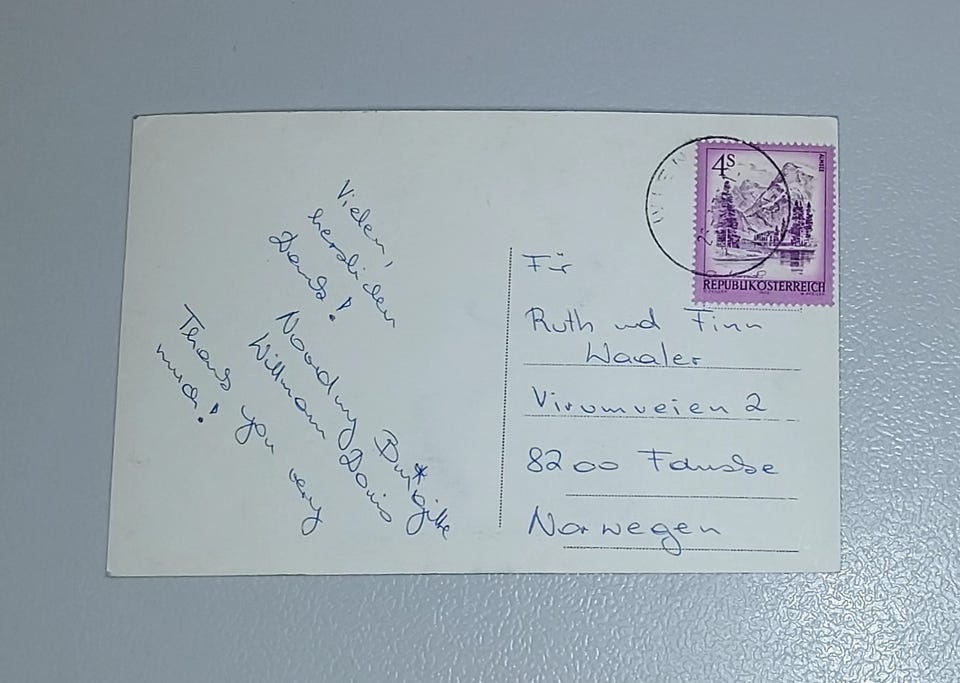 Vielen,
herzlichen
Dank!
Brigitte
Willmann Doris
Thank you very
much!
Für
Ruth und Finn
Waaler
Virumveien 2
8200 Fauske
Norwegen
WIEN
4S
ALMSEE
REPUBLIK ÖSTERREICH